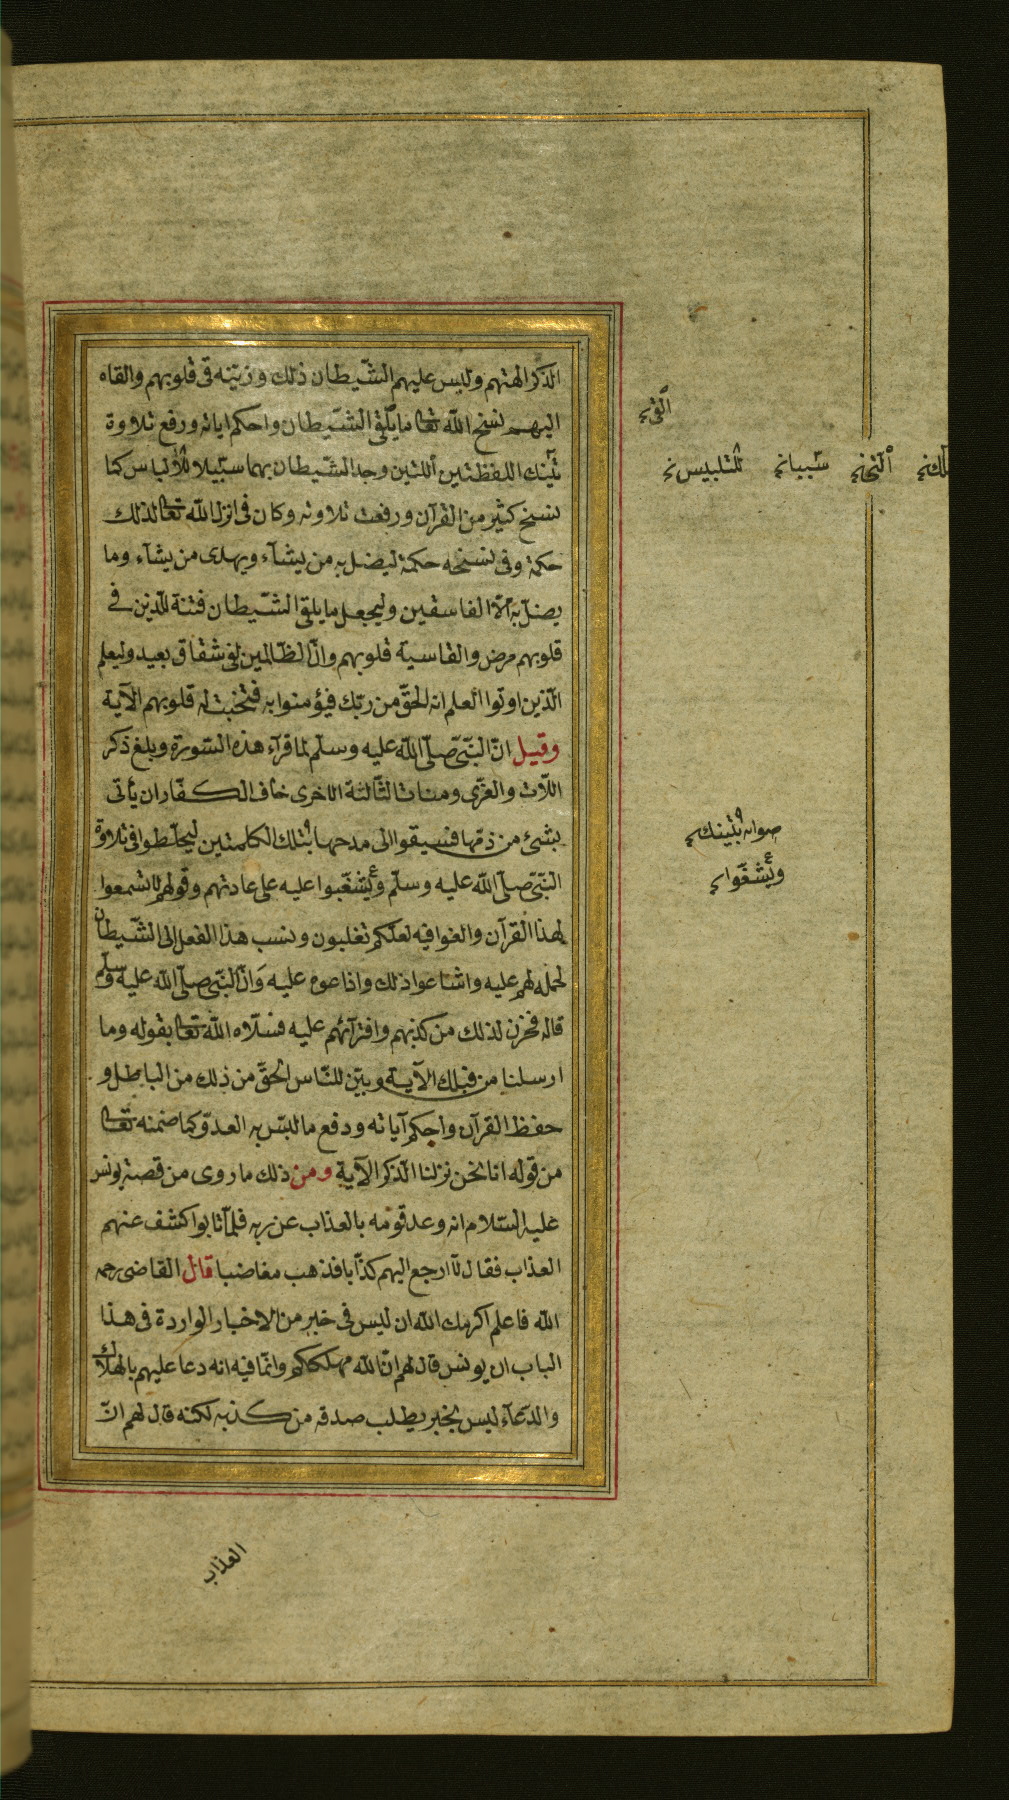 الذكر الهتهم ولبس عليهم الشّيطان ذلك وزيّنه فى قلوبهم والقاه
اليهم نسخ اللّه تعا ما يلقى الشّيطان واحكم اياته ورفع تلاوة
تينك اللفظتين اللتين وجد الشّيطان بهما سبيلا للالباس كما
نسخ كثير من القرآن ورفعت تلاوته وكان فى انزال اللّه تعا لذلك
حكمة وفى نسخه حكمة ليضل به من يشآء ويهدى من يشآء وما
يضلّ به الّا الفاسقين وليجعل ما يلقى الشّيطان فتنة للّذين فى
قلوبهم مرض والقاسية قلوبهم وانّ الظّالمين لفى شقاق بعيد وليعلم
الّذين اوتوا العلم انه الحقّ من ربّك فيؤمنوا به فتخبت له قلوبهم الآية
وقيل انّ النّبىّ صلّى اللّه عليه وسلّم لما قرآء هذه السّورة وبلغ ذكر
اللّات والعزّى ومنات الثّالثة الاخرى خاف الكفّار ان يأتى
بشئ من ذمّها فسبقوا الى مدحها بتلك الكلمتين ليخلّطوا فى تلاوة
النّبىّ صلّى اللّه عليه وسلّم ويشغّبوا عليه على عادتهم وقولهم لا تسمعوا
لهذا القرآن والغوا فيه لعلكم تغلبون ونسب هذا الفعل الى الشّيطان
لحمله لهم عليه واشاعوا ذلك واذاعوه عليه وَانّ النّبىّ صلّى اللّه عليه وسلّم
قاله فحزن لذلك من كذبهم وافترآئهم عليه فسلّاه اللّه تعا بقوله وما
ارسلنا من قبلك الآية وبيّن للنّاس الحقّ من ذلك من الباطل و
حفظ القرآن واحكم آياته ودفع ما لبّس به العدوّ كما ضمنه تعا
من قوله انا نحن نزلنا الذّكر الآية ومن ذلك ما روى من قصة يونس
عليه السّلام انه وعد قومه بالعذاب عن ربه فلمّا تابوا كشف عنهم
العذاب فقال لآ ارجع اليهم كذّابا فذهب مغاضبا قال القاضى رحمه
اللّه فاعلم اكرمك اللّه ان ليس فى خبر من الاخبار الواردة فى هذا
الباب ان يونس قال لهم انّ اللّه مهلككم وانّما فيه انه دعا عليهم بالهلاك
والدّعآء ليس بخبر يطلب صدقه من كذبه لكنه قال لهم انّ
القى
للتلبيس
صوابه بتينك
ويشغّوا
العذاب